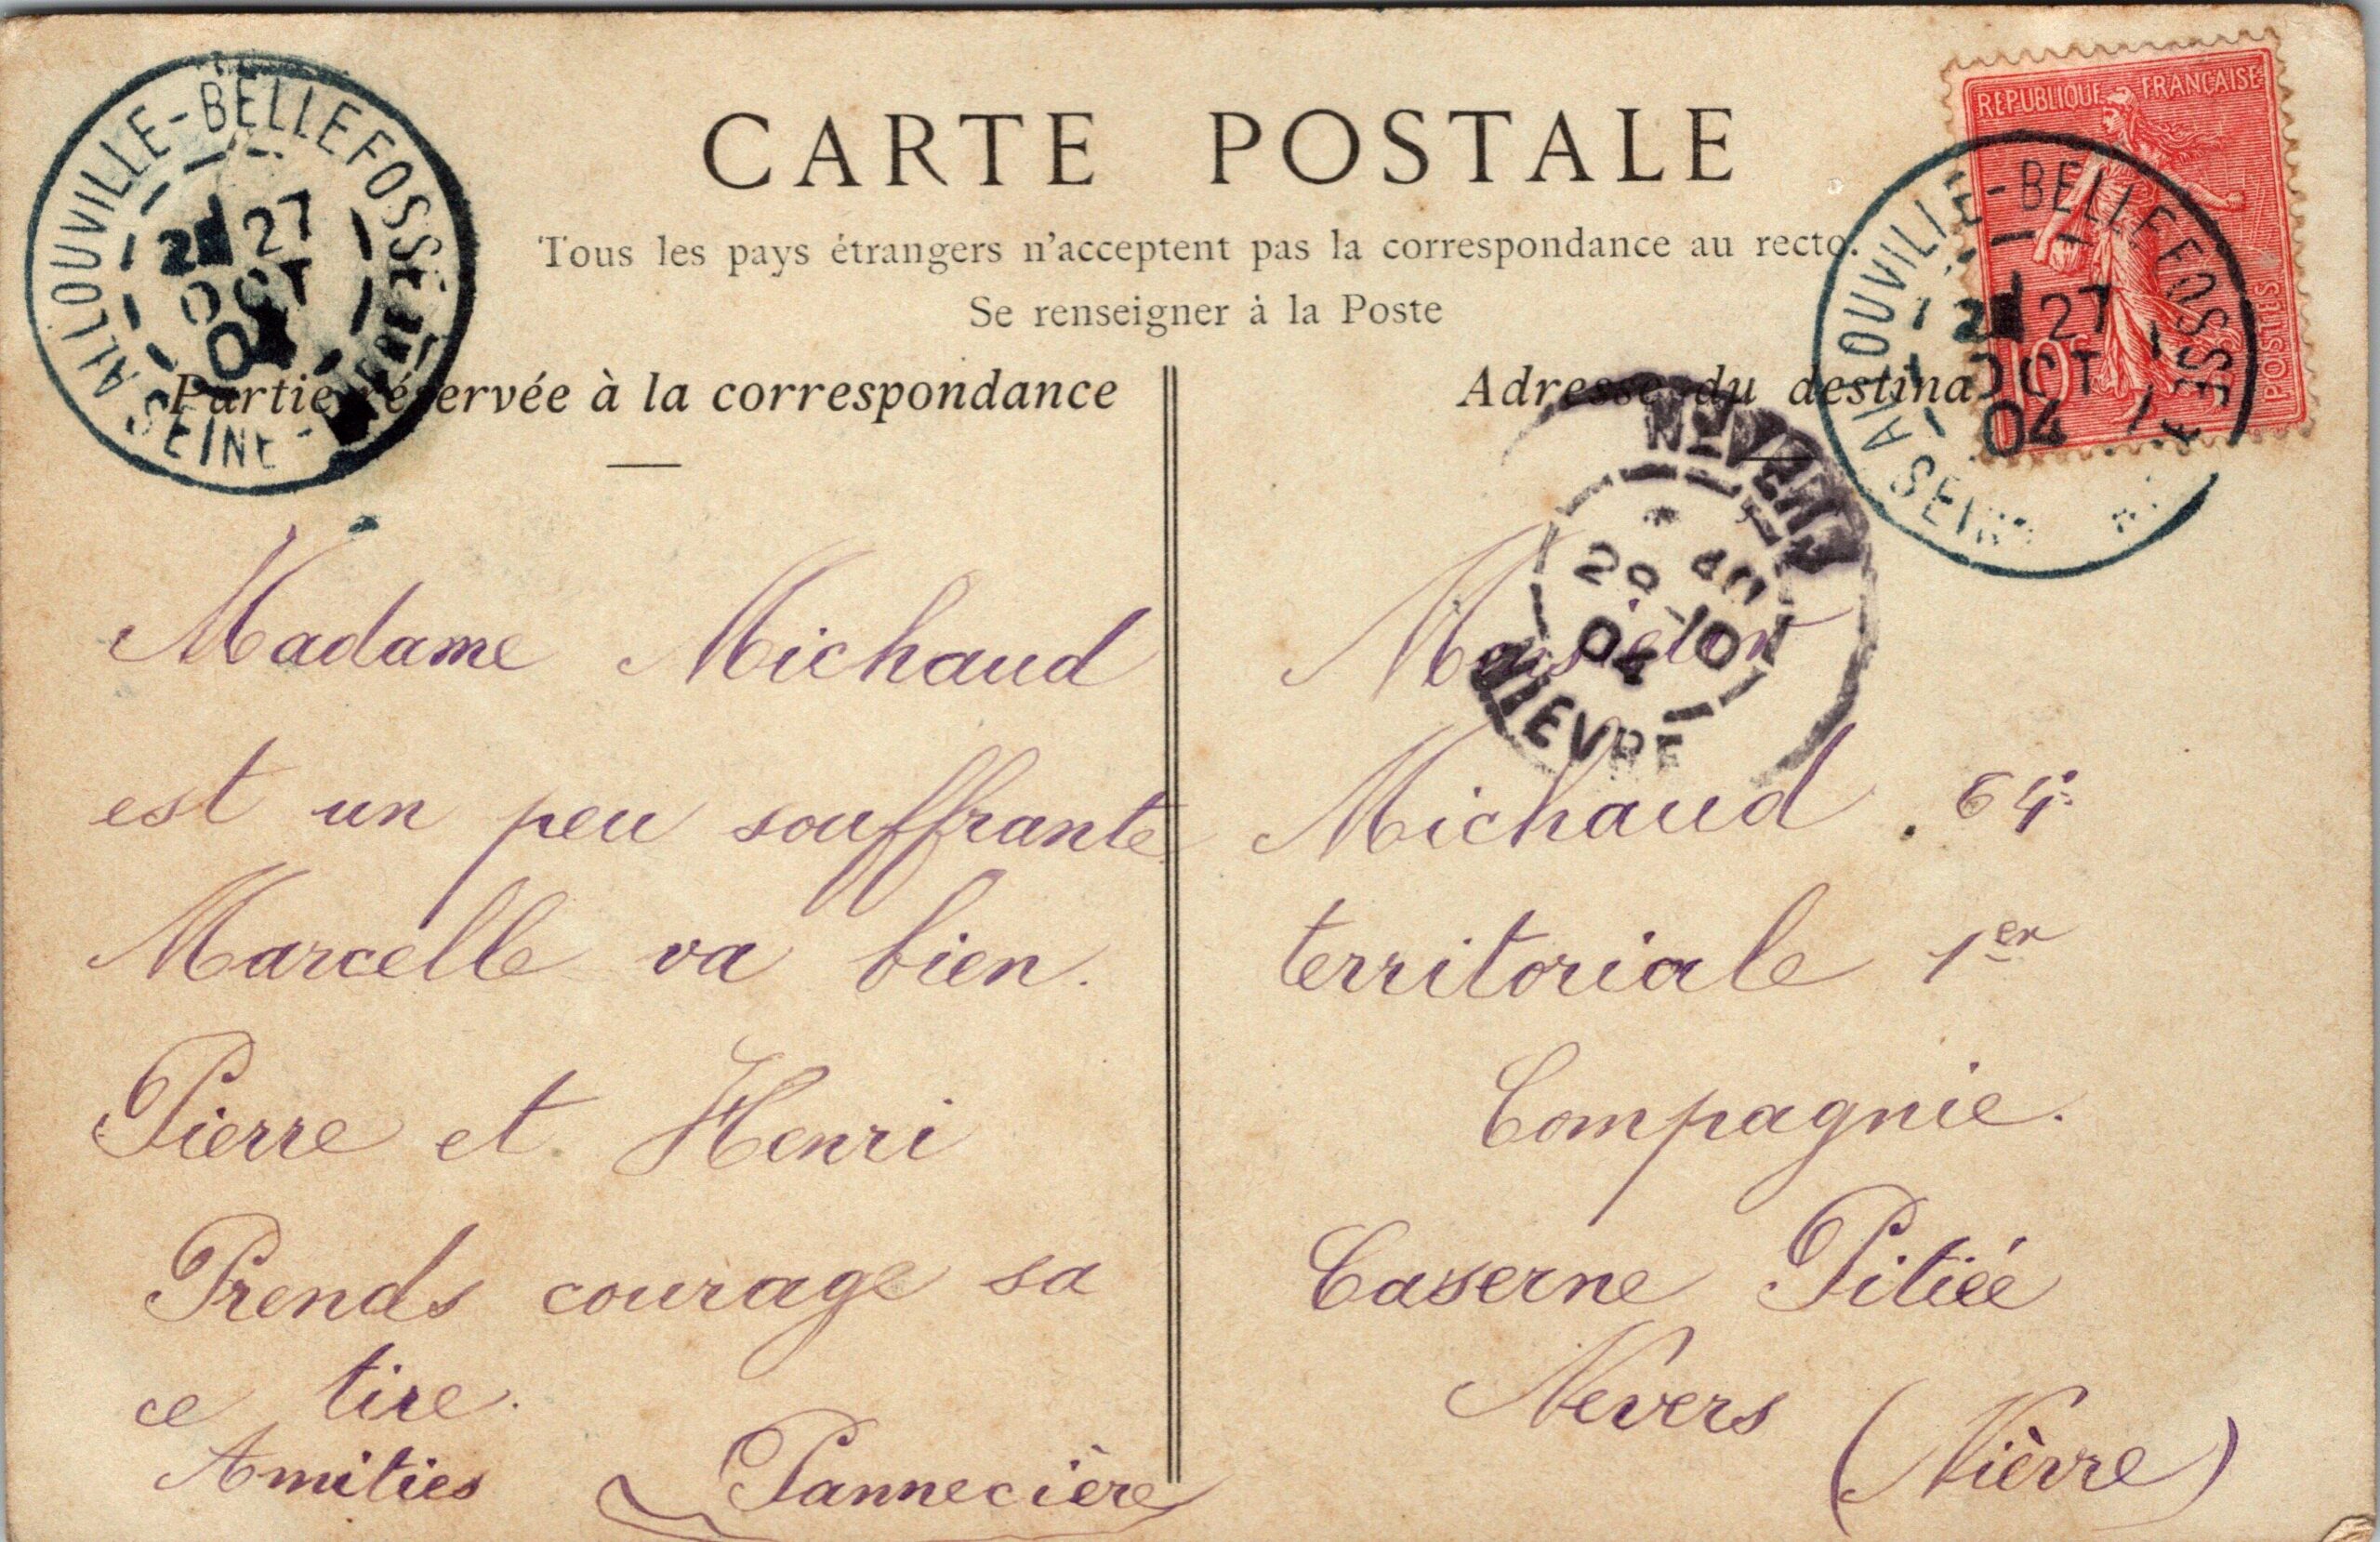 CARTE POSTALE
Tous les pays étrangers n'acceptent pas la correspondance au recto.
Se renseigner à la Poste
Partie réservée à la correspondance
Adresse du destina
ALLOUVILLE-BELLEFOSSE
27
OCT
04
SEINE-
REPUBLIQUE FRANÇAISE
POSTES
10
ALLOUVILLE-BELLEFOSSE
27
OCT
04
SEINE
NEVERS
29 10
04
NIEVRE
Madame Michaud
est un peu souffrante
Marcelle va bien.
Pierre et Henri
Prends courage sa
ce tire.
Amitiés Pannecière
Monsieur
Michaud. 64e
territoriale 1er
Compagnie.
Caserne Pitiéé
Nevers
(Nièvre)